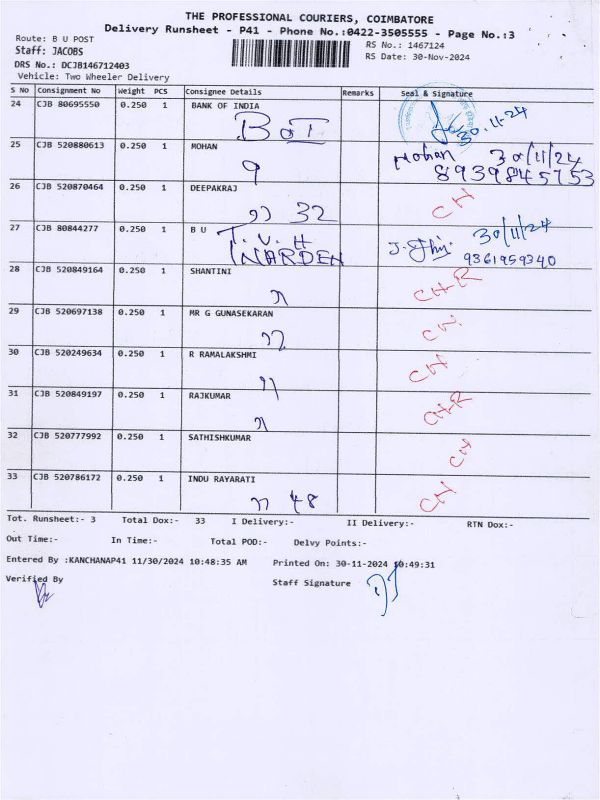 THE PROFESSIONAL COURIERS, COIMBATORE
Delivery Runsheet - P41 - Phone No.:0422-3505555 - Page No.:3
Route: B U POST
RS No.: 1467124
Staff: JACOBS
RS Date: 30-Nov-2024
DRS No.: DCJB146712403
Vehicle: Two Wheeler Delivery
S No Consignment No Weight PCS Consignee Details Remarks Seal & Signature
24 CJB 80695550 0.250 1 BANK OF INDIA
BOI 30.11-24
25 CJB 520880613 0.250 1 MOHAN
Mohan 30/11/24
8939845753
26 CJB 520870464 0.250 1 DEEPAKRAJ
32 CN
27 CJB 80844277 0.250 1 B U
T.V.H 30/11/24
9361959340
28 CJB 520849164 0.250 1 SHANTINI
29 CJB 520697138 0.250 1 MR G GUNASEKARAN
CN.
30 CJB 520249634 0.250 1 R RAMALAKSHMI
CN
31 CJB 520849197 0.250 1 RAJKUMAR
32 CJB 520777992 0.250 1 SATHISHKUMAR
CN
33 CJB 520786172 0.250 1 INDU RAYARATI
48 CN
Tot. Runsheet:- 3 Total Dox:- 33 I Delivery:- II Delivery:- RTN Dox:-
Out Time:- In Time:- Total POD:- Delvy Points:-
Entered By :KANCHANAP41 11/30/2024 10:48:35 AM Printed On: 30-11-2024 10:49:31
Verified By Staff Signature